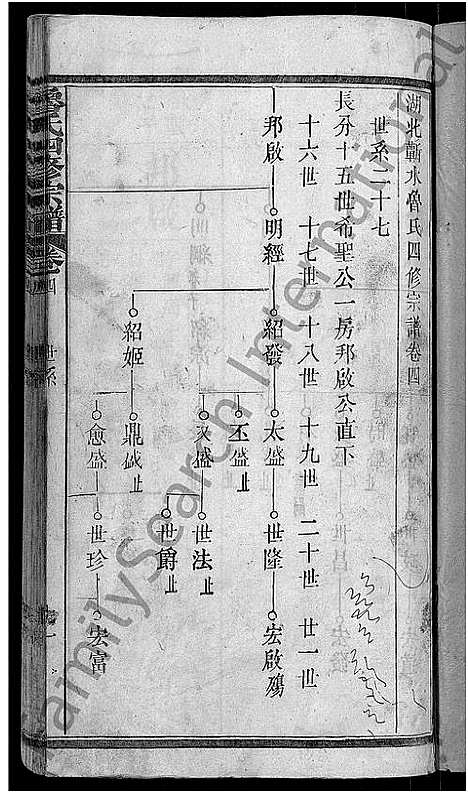 湖北蘄水魯氏四修宗譜卷四
世系二十七
長分十五世希聖公一房邦啟公直下
十六世 十七世 十八世 十九世 二十世 廿一世
邦啟 明經 紹發 太盛 世隆 宏啟殤
丕盛止
又盛 世法止
世爵止
紹姬 鼎盛止
愈盛 世珍 宏富
魯氏四修宗譜 卷四 世系 一
FamilySearch International